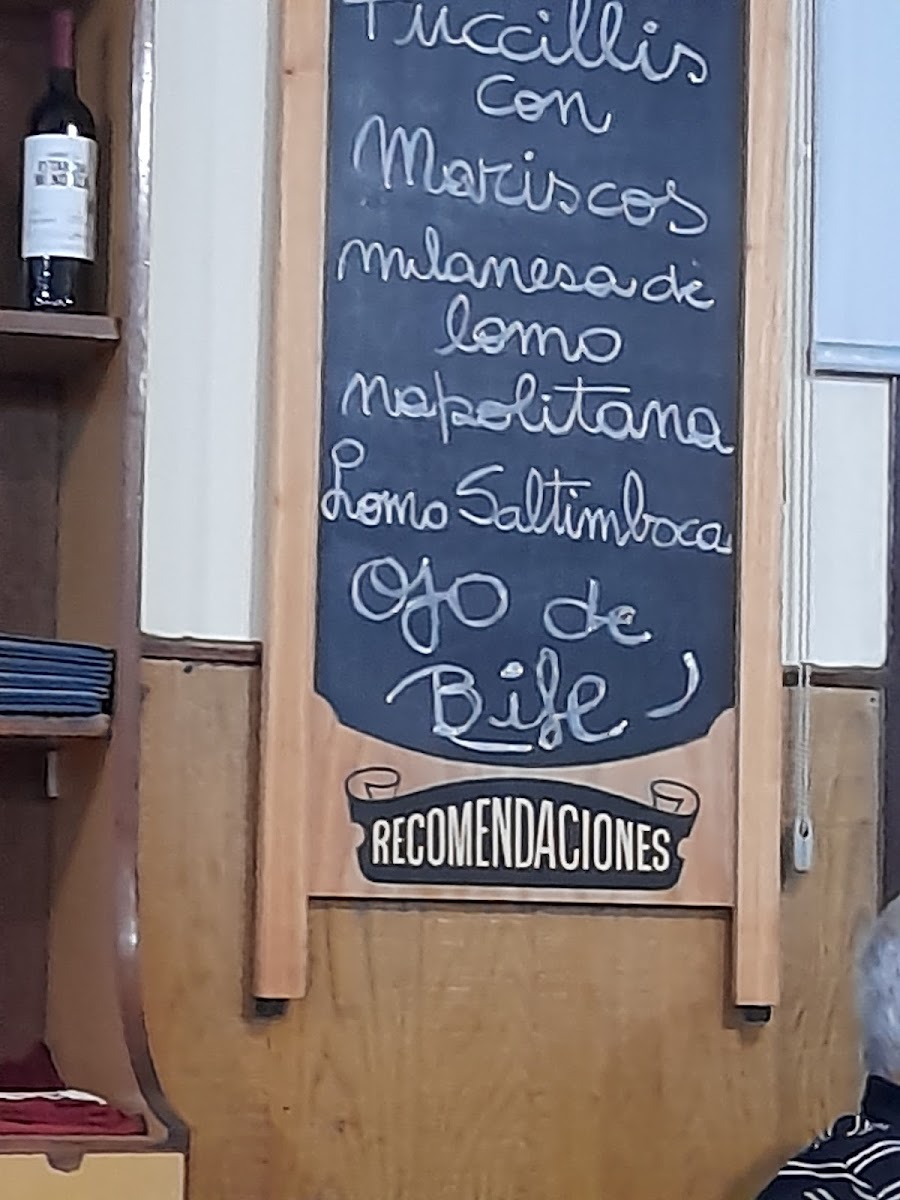 Fuccillis
con
Mariscos
milanesa de
lomo
napolitana
Lomo Saltimboca
Ojo de
Bife
RECOMENDACIONES